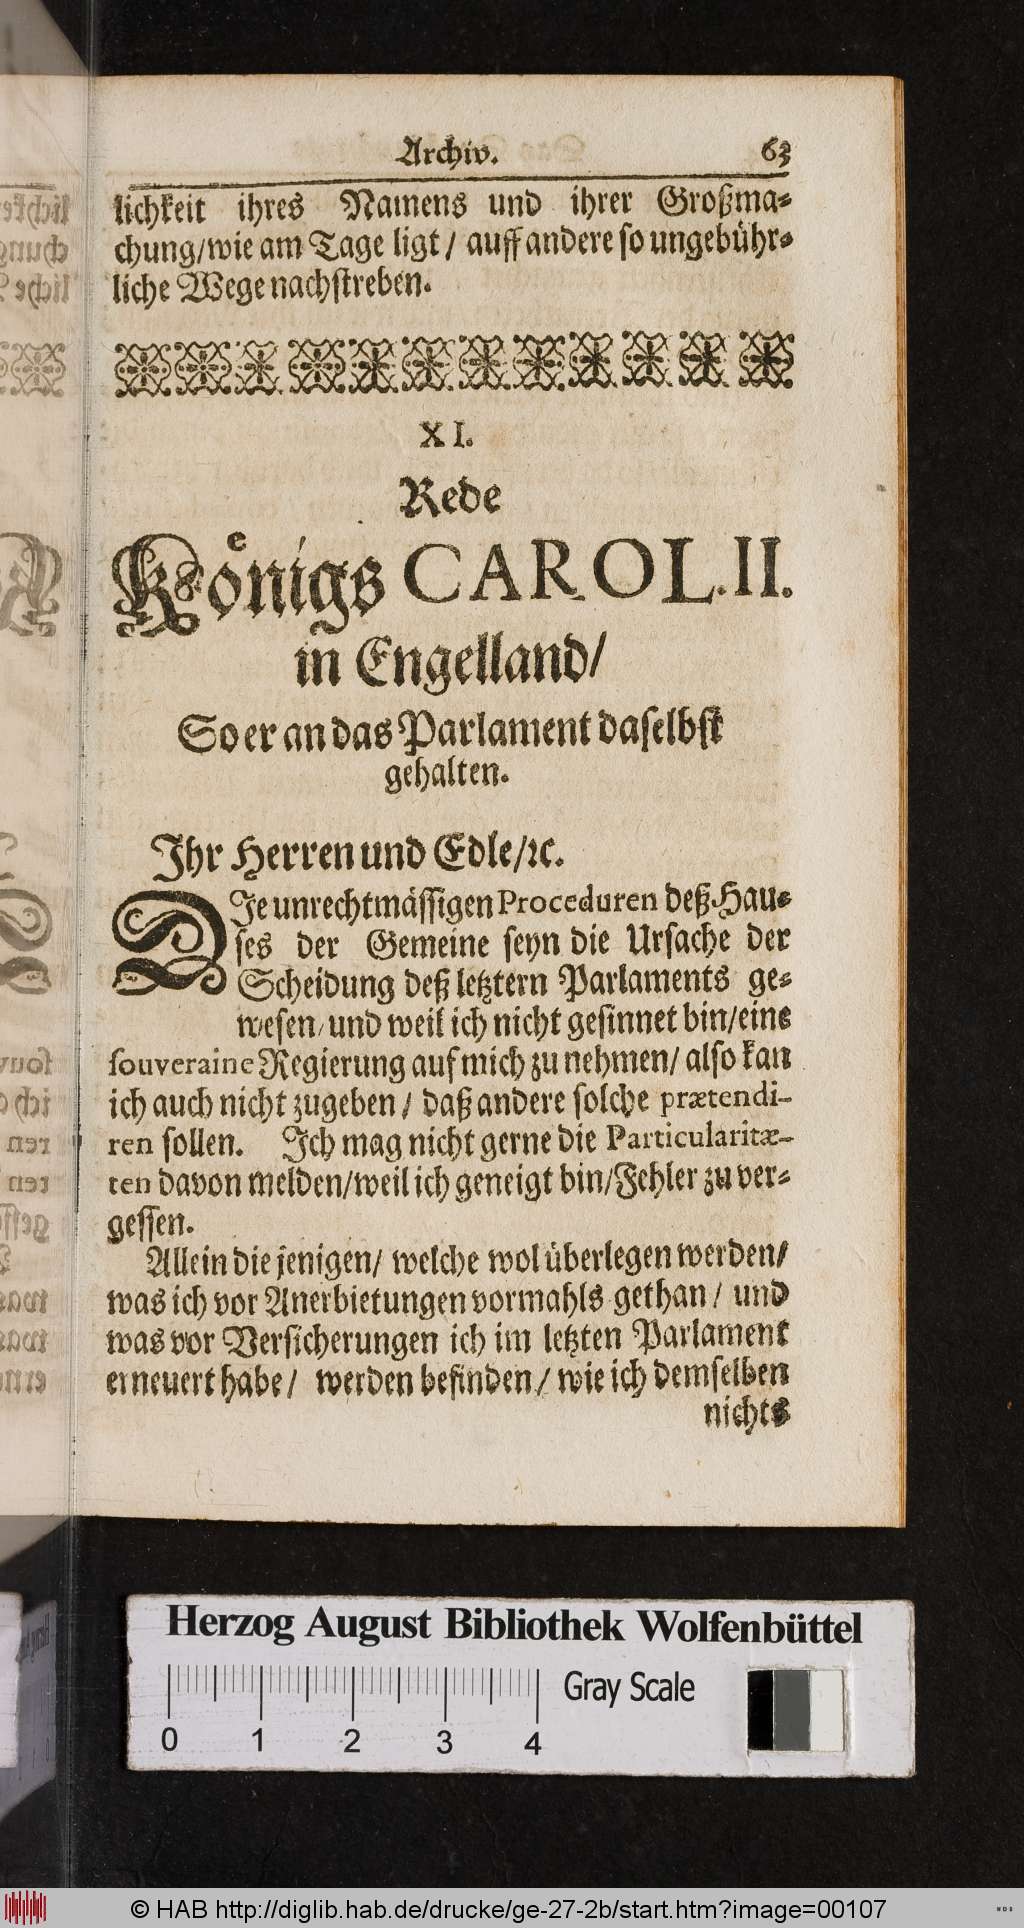 Archiv. 63
lichkeit ihres Namens und ihrer Großma-
chung/wie am Tage ligt / auff andere so ungebühr-
liche Wege nachstreben.
XI.
Rede
Koͤnigs CAROL. II.
in Engelland/
So er an das Parlament daselbst
gehalten.
Ihr Herren und Edle/ꝛc.
DIe unrechtmässigen Proceduren deß Hau-
ses der Gemeine seyn die Ursache der
Scheidung deß letztern Parlaments ge-
wesen/und weil ich nicht gesinnet bin/eine
souveraine Regierung auf mich zu nehmen/ also kan
ich auch nicht zugeben / daß andere solche prætendi-
ren sollen. Ich mag nicht gerne die Particularitæ-
ten davon melden/weil ich geneigt bin/Fehler zu ver-
gessen.
Allein die jenigen/ welche wol überlegen werden/
was ich vor Anerbietungen vormahls gethan / und
was vor Versicherungen ich im letzten Parlament
erneuert habe / werden befinden / wie ich demselben
nichts
Herzog August Bibliothek Wolfenbüttel
0 1 2 3 4 Gray Scale
© HAB http://diglib.hab.de/drucke/ge-27-2b/start.htm?image=00107